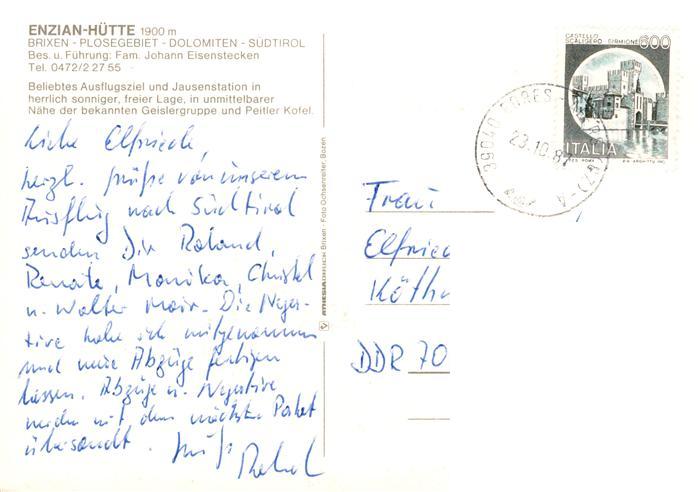 ENZIAN-HÜTTE 1900 m
BRIXEN - PLOSEGEBIET - DOLOMITEN - SÜDTIROL
Bes. u. Führung: Fam. Johann Eisenstecken
Tel. 0472/2 27 55
Beliebtes Ausflugsziel und Jausenstation in
herrlich sonniger, freier Lage, in unmittelbarer
Nähe der bekannten Geislergruppe und Peitler Kofel.
Liebe Elfriede,
herzl. Grüße von unserem
Ausflug nach Südtirol
senden Dir Roland,
Renate, Monika, Christel
u. Walter Mair. Die Nega-
tive habe ich mitgenommen
und neue Abzüge fertigen
lassen. Abzüge u. Negative
werden mit dem nächsten Paket
übersandt. Gruß
Roland
ATHESIADRUCK Brixen - Foto Ochsenreiter, Bozen
CASTELLO
SCALIGERO - SIRMIONE
600
ITALIA
39040
23.10.87
Frau
Elfried
Köth
DDR 70